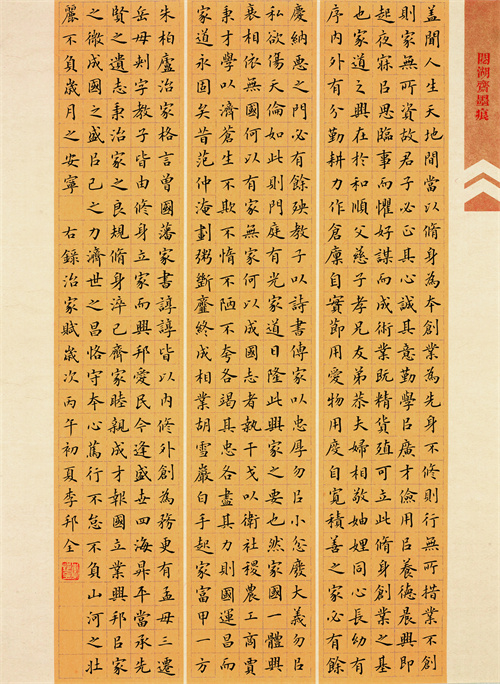 蓋聞人生天地間當以脩身為本創業為先身不修則行無所措業不創
則家無所資故君子必正其心誠其意勤學㠯廣才儉用㠯養德晨興即
起夜寐㠯思臨事而懼好謀而成術業既精貨殖可立此脩身創業之基
也家道之興在於和順父慈子孝兄友弟恭夫婦相敬妯娌同心長幼有
序內外有分勤耕力作倉廩自實節用愛物用度自寬積善之家必有餘
慶納惡之門必有餘殃教子以詩書傳家以忠厚勿㠯小忿廢大義勿㠯
私欲傷天倫如此則門庭有光家道日隆此興家之要也然家國一體興
衰相依無國何以有家無家何以成國志者執干戈以衛社稷農工商賈
秉才學以濟蒼生不欺不惰不陋不夸各竭其忠各盡其力則國運昌而
家道永固矣昔范仲淹劃粥斷齏終成相業胡雪巖白手起家富甲一方
朱柏廬治家格言曾國藩家書諄諄皆以內修外創為務更有孟母三遷
岳母刺字教子皆由修身立家而興邦愛民今逢盛世四海昇平當承先
賢之遺志秉治家之良規脩身淬己齊家睦親成才報國立業興邦㠯家
之微成國之盛㠯己之力濟世之昌恪守本心篤行不怠不負山河之壯
麗不負歲月之安寧 右錄治家賦歲次丙午初夏李邦全
湖齋墨痕